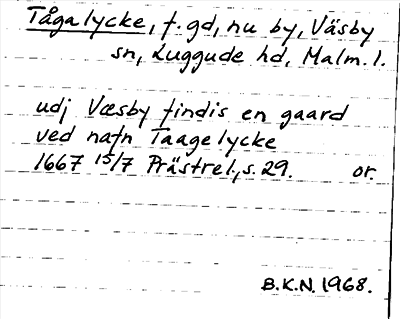 Tågalycke, f. gd, nu by, Väsby
sn, Luggude hd, Malm. l.
udj Væsby findis en gaard
ved nafn Taagelycke
1667 15/7 Prästrel., s. 29. or.
B.K.N. 1968.